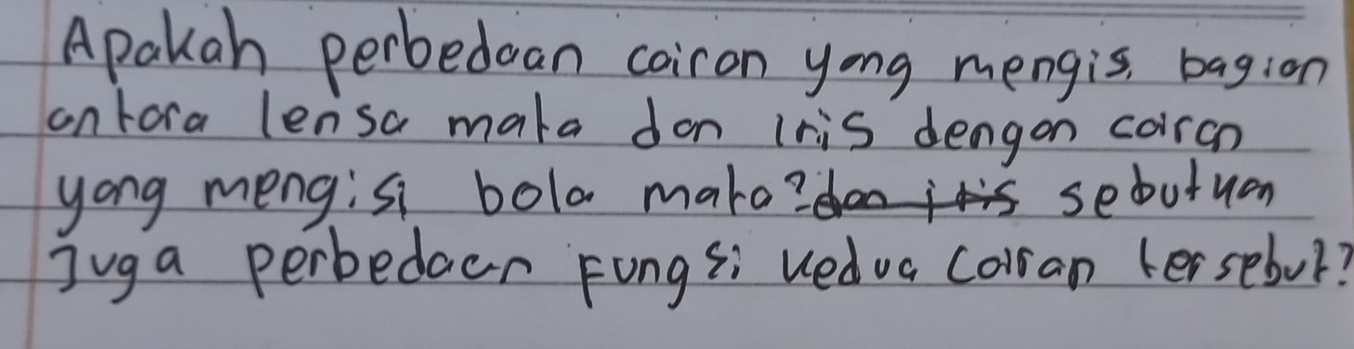 Apakah perbedaan cairan yang mengisi bagian
antara lensa mata dan iris dengan cairan
yang mengisi bola mata? dan iris sebutkan
Juga perbedaan Fungsi kedua cairan tersebut?